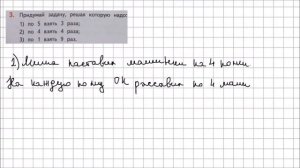 3. Придумай задачу, решая которую надо:
1) по 5 взять 3 раза;
2) по 4 взять 4 раза;
3) по 1 взять 9 раз.
1) Миша поставил машинки на 4 полки
На каждую полку он расставил по 4 маши